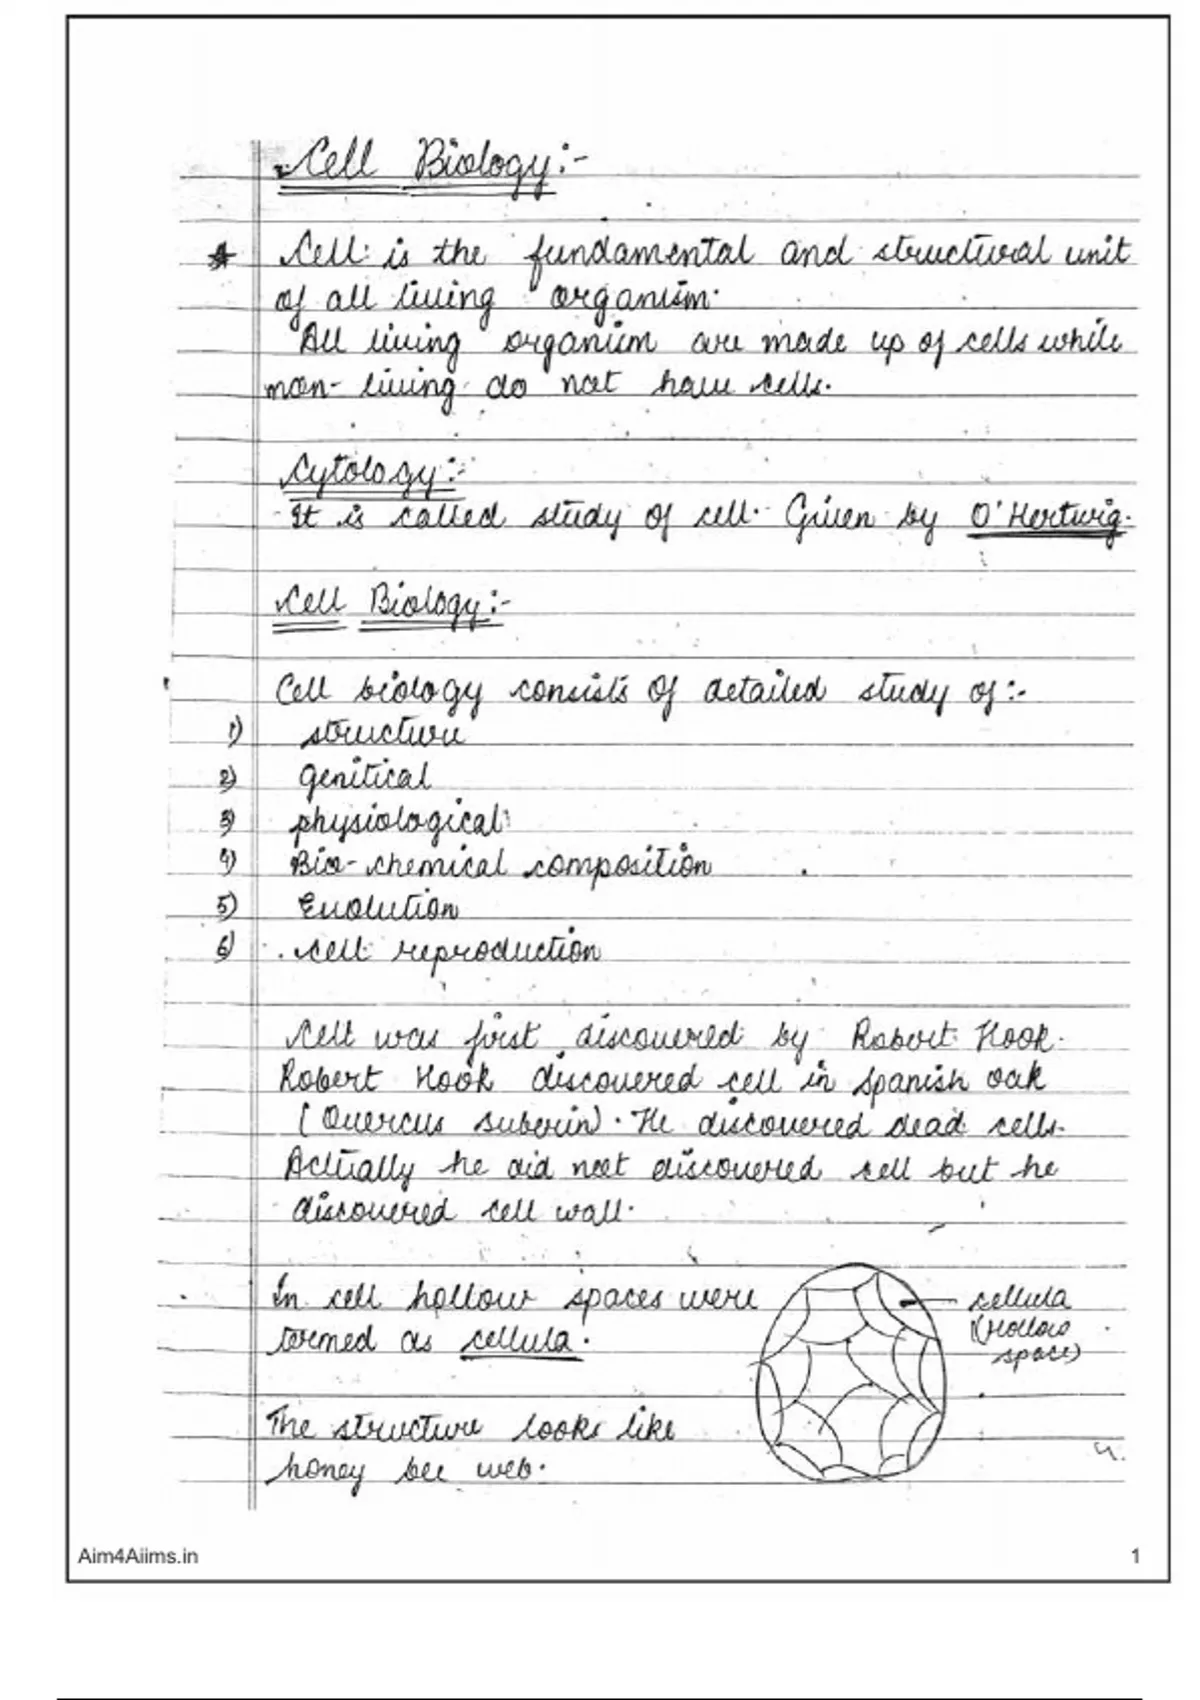 Cell Biology:-
* Cell is the fundamental and structural unit
of all living organism.
All living organism are made up of cells while
non-living do not have cells.
Cytology:-
It is called study of cell. Given by O'Hertwig.
Cell Biology:-
Cell biology consists of detailed study of:-
1) structure
2) genitical
3) physiological
4) Bio-chemical composition
5) Evolution
6) cell reproduction
Cell was first discovered by Robert Hook.
Robert Hook discovered cell in spanish oak
(Quercus suberin). He discovered dead cells.
Actually he did not discovered cell but he
discovered cell wall.
In cell hollow spaces were
termed as cellula.
cellula
(Hollow
space)
The structure looks like
honey bee web.
Aim4Aiims.in
1